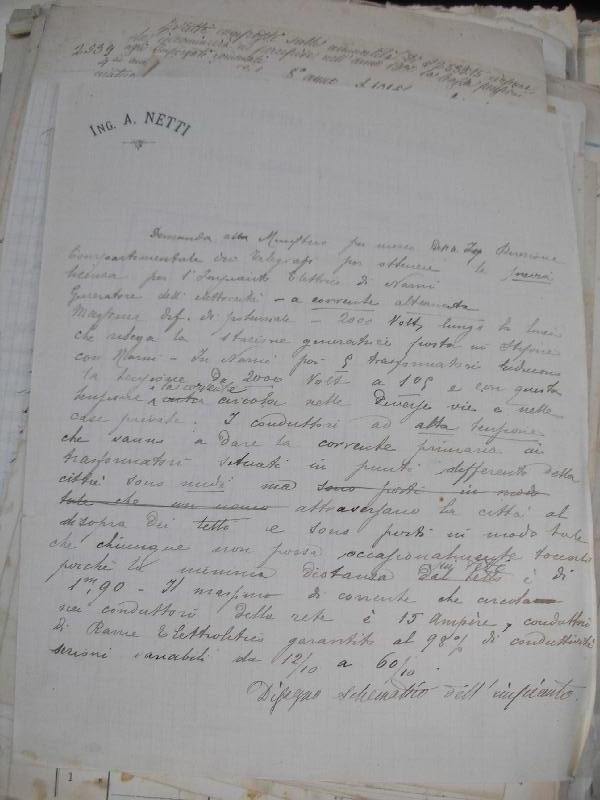 2539
5° anno
ING. A. NETTI
Domanda alla Ministero per mezzo Direzione
Compartimentale dei Telegrafi per ottenere la
licenza per l'Impianto Elettrico di Narni
Generatore dell'elettricità - a corrente alternata
Massima dif. di potenziale - 2000 Volt, lungo la linea
che collega la stazione generatrice posta in Stifone
con Narni - In Narni poi 5 trasformatori riducono
la tensione da 2000 Volt a 105 e con questa
tensione la corrente circola nelle diverse vie e nelle
case private. I conduttori ad alta tensione
che vanno a dare la corrente primaria ai
trasformatori situati in punti differenti della
città sono nudi ma sono posti in modo
tale che attraversano la città al
disopra dei tetti e sono posti in modo tale
che chiunque non possa occasionalmente toccarli
perché la minima distanza dai tetti è di
1m,90 - Il massimo di corrente che circola
nei conduttori della rete è 15 Ampère, conduttori
di Rame Elettrolitico garantito al 98% di conduttività
sezioni variabili da 12/10 a 60/10.
Disegno schematico dell'impianto.
1